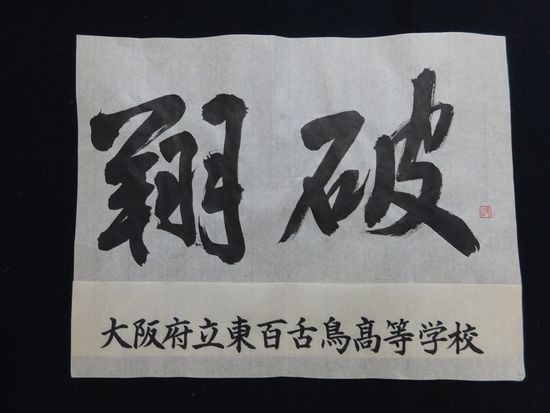 翔破
大阪府立東百舌鳥高等学校